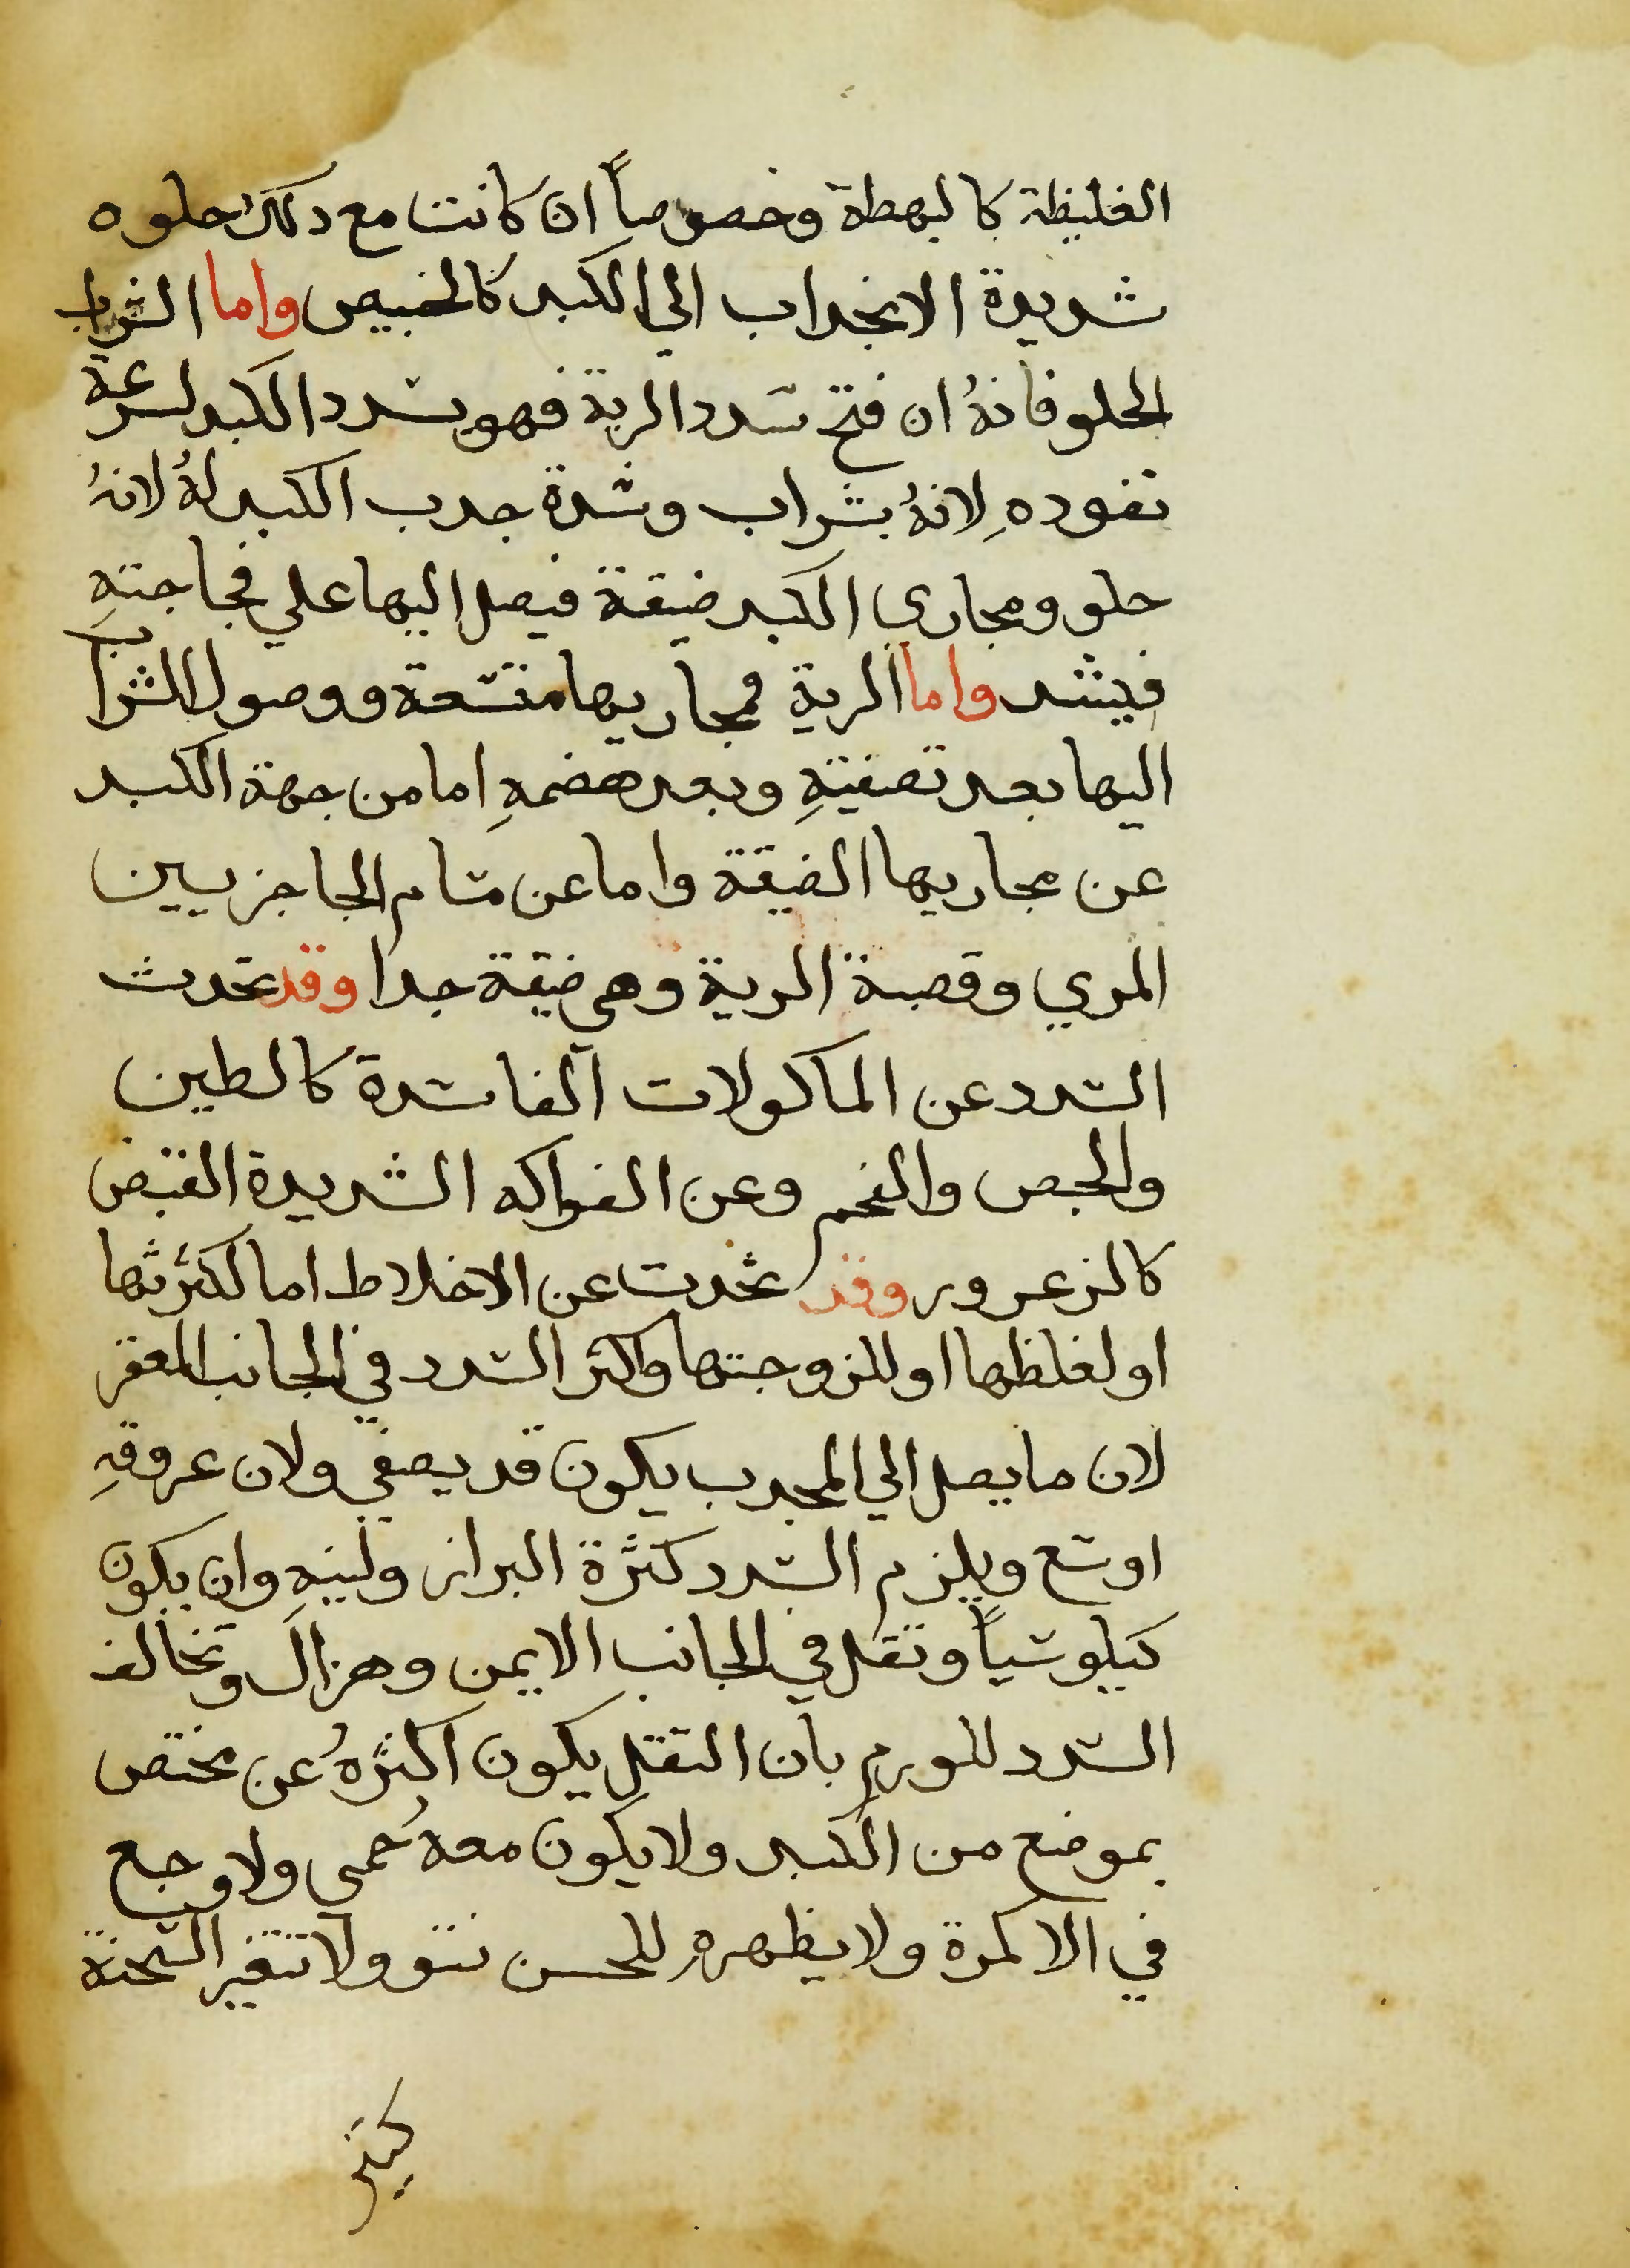 الغليظة كالبهطة وخصوصاً ان كانت مع دلك حلوه
شديدة الانجداب الي الكبد كالخبيص واما الشراب
الحلو فانهُ ان فتح سدد الرية فهو يسدد الكبد لسرعة
نفودهِ لانهُ بشراب وشدة جدب الكبد لهُ لانهُ
حلو ومجاري الكبد ضيقة فيصل اليها علي فجاجتهِ
فيسد واما الرية فمجاريها متسعة ووصول الشراب
اليها بعد تصفيتهِ وبعد هضمهِ اما من جهة الكبد
عن مجاريها الضيقة واما عن مسام الحاجز بين
المري وقصبة الرية وهي ضيقة جدا وقد تحدث
السدد عن الماكولات الفاسدة كالطين
والجص والفحم وعن الفواكه الشديدة القبض
كالزعرور وقد تحدت عن الاخلاط اما لكثرثها
او لغلظها او للزوجتها واكثر السدد في الجانب المقعر
لان ما يصل الي المحدب يكون قد يصفي ولان عروقهِ
اوسع ويلزم السدد كثرة البراز ولينهِ وان يكون
كيلوسياً وتقل في الجانب الايمن وهزال وتخالف
السدد للورم بان التقل يكون اكثرهُ عن مختص
بموضع من الكبد ولا يكون معهُ حُمى ولا وجع
في الاكمرة ولا يظهر للحس نتو ولا تتغير السحنة
كيثر